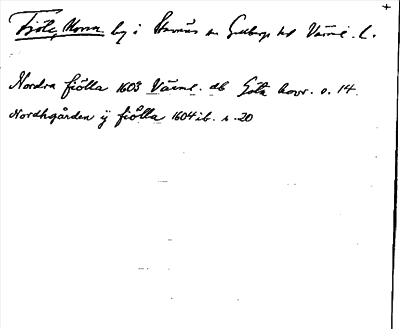 Fjöle, Norra by i Stavnäs sn Gillbergs hd Värml. l.
Nordra fiölla 1603 Värml. db Göta hovr. s. 14.
Nordhgården ÿ fiölla 1604 ib. s. 20